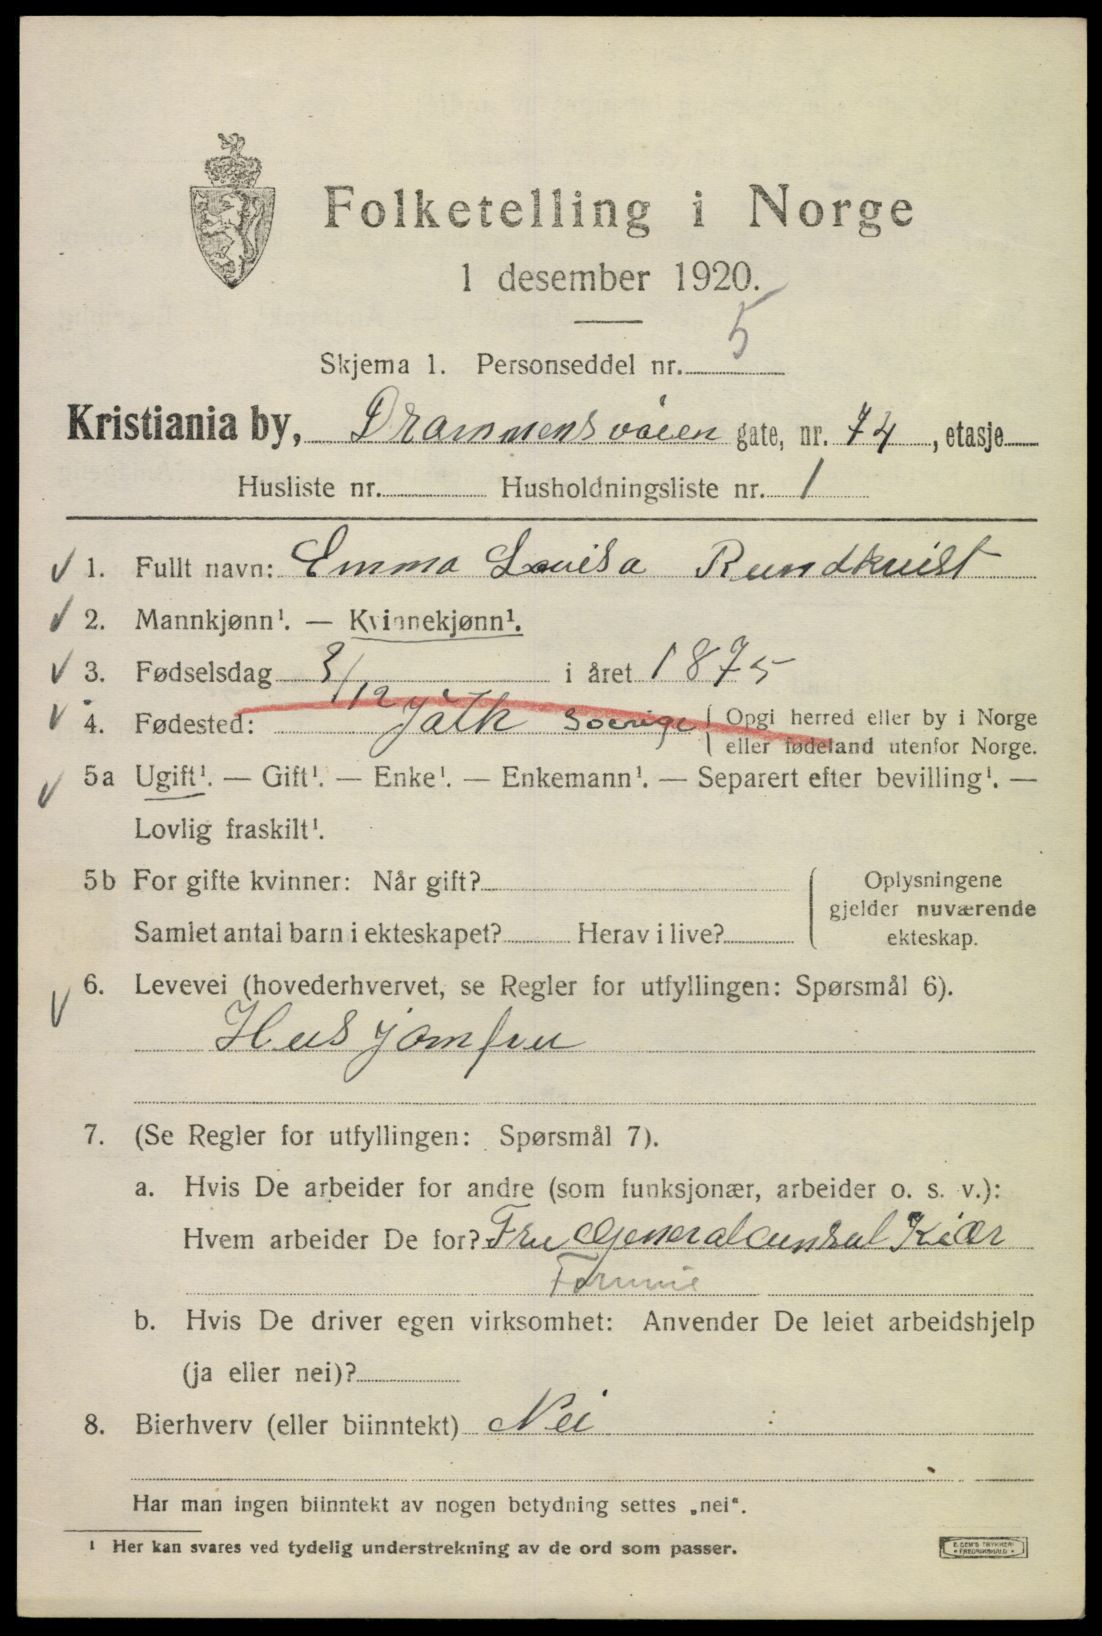 Folketelling i Norge
1 desember 1920.
Skjema 1. Personseddel nr. 5
Kristiania by, Drammensvåien gate, nr. 74, etasje
Husliste nr. Husholdningsliste nr. 1
1. Fullt navn: Emma Lovisa Rundkvist
2. Mannkjønn¹. — Kvinnekjønn¹.
3. Fødselsdag 3/12 i året 1875
4. Fødested: Sverige { Opgi herred eller by i Norge
eller fødeland utenfor Norge.
5a Ugift¹. — Gift¹. — Enke¹. — Enkemann¹. — Separert efter bevilling¹. —
Lovlig fraskilt¹.
5b For gifte kvinner: Når gift? { Oplysningene
gjelder nuværende
Samlet antal barn i ekteskapet? Herav i live? ekteskap.
6. Levevei (hovederhvervet, se Regler for utfyllingen: Spørsmål 6).
Husjomfru
7. (Se Regler for utfyllingen: Spørsmål 7).
a. Hvis De arbeider for andre (som funksjonær, arbeider o. s. v.):
Hvem arbeider De for? Fru Generalcunsul Kiær
b. Hvis De driver egen virksomhet: Anvender De leiet arbeidshjelp
(ja eller nei)?
8. Bierhverv (eller biinntekt) Nei
Har man ingen biinntekt av nogen betydning settes „nei“.
¹ Her kan svares ved tydelig understrekning av de ord som passer.